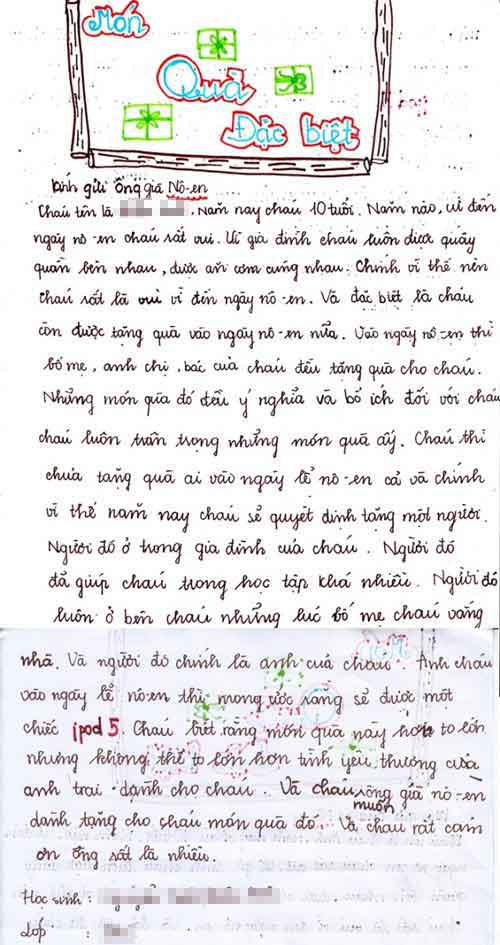 Món
Quà
Đặc biệt
kính gửi ông già Nô-en
Cháu tên là Năm nay cháu 10 tuổi. Năm nào, cứ đến
ngày nô-en cháu rất vui. Vì gia đình cháu luôn được quây
quần bên nhau, được ăn cơm cùng nhau. Chính vì thế nên
cháu rất là vui vì đến ngày nô-en. Và đặc biệt là cháu
còn được tặng quà vào ngày nô-en nữa. Vào ngày nô-en thì
bố mẹ, anh chị, bác của cháu đều tặng quà cho cháu.
Những món qùa đó đều ý nghĩa và bổ ích đối với cháu
cháu luôn trân trọng những món quà ấy. Cháu thì
chưa tặng quà ai vào ngày lễ nô-en cả và chính
vì thế năm nay cháu sẽ quyết định tặng một người.
Người đó ở trong gia đình của cháu. Người đó
đã giúp cháu trong học tập khá nhiều. Người đó
luôn ở bên cháu những lúc bố mẹ cháu vắng
nhà. Và người đó chính là anh của cháu. Anh cháu
vào ngày lễ nô-en thì mong ước rằng sẽ được một
chiếc ipod 5. Cháu biết rằng món quà này hơn to lớn
nhưng không thể to lớn hơn tình yêu thương của
anh trai dành cho cháu. Và cháu muốn ông già nô-en
dành tặng cho cháu món quà đó. Và cháu rất cám
ơn ông rất là nhiều.
Học sinh :
Lớp :